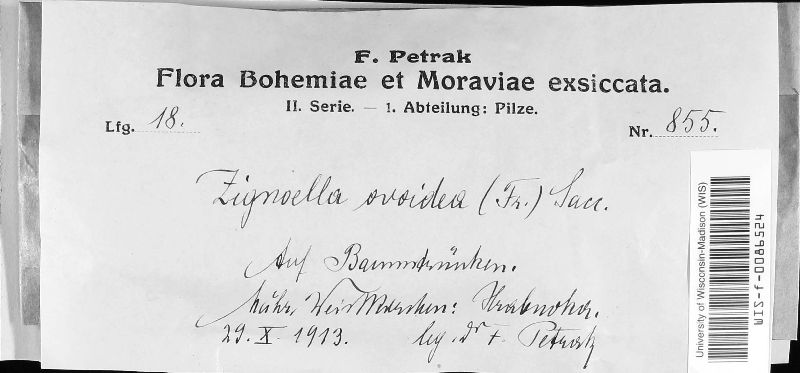 F. Petrak
Flora Bohemiae et Moraviae exsiccata.
II. Serie. — 1. Abteilung: Pilze.
Lfg. 18.
Nr. 855.
Zignoella ovoidea (Fr.) Sacc.
Auf Baumstrünken.
Mähr. Weisskirchen: Hrabuvka.
29. X. 1913. leg. Dr F. Petrak
University of Wisconsin-Madison (WIS)
WIS-f-0086524